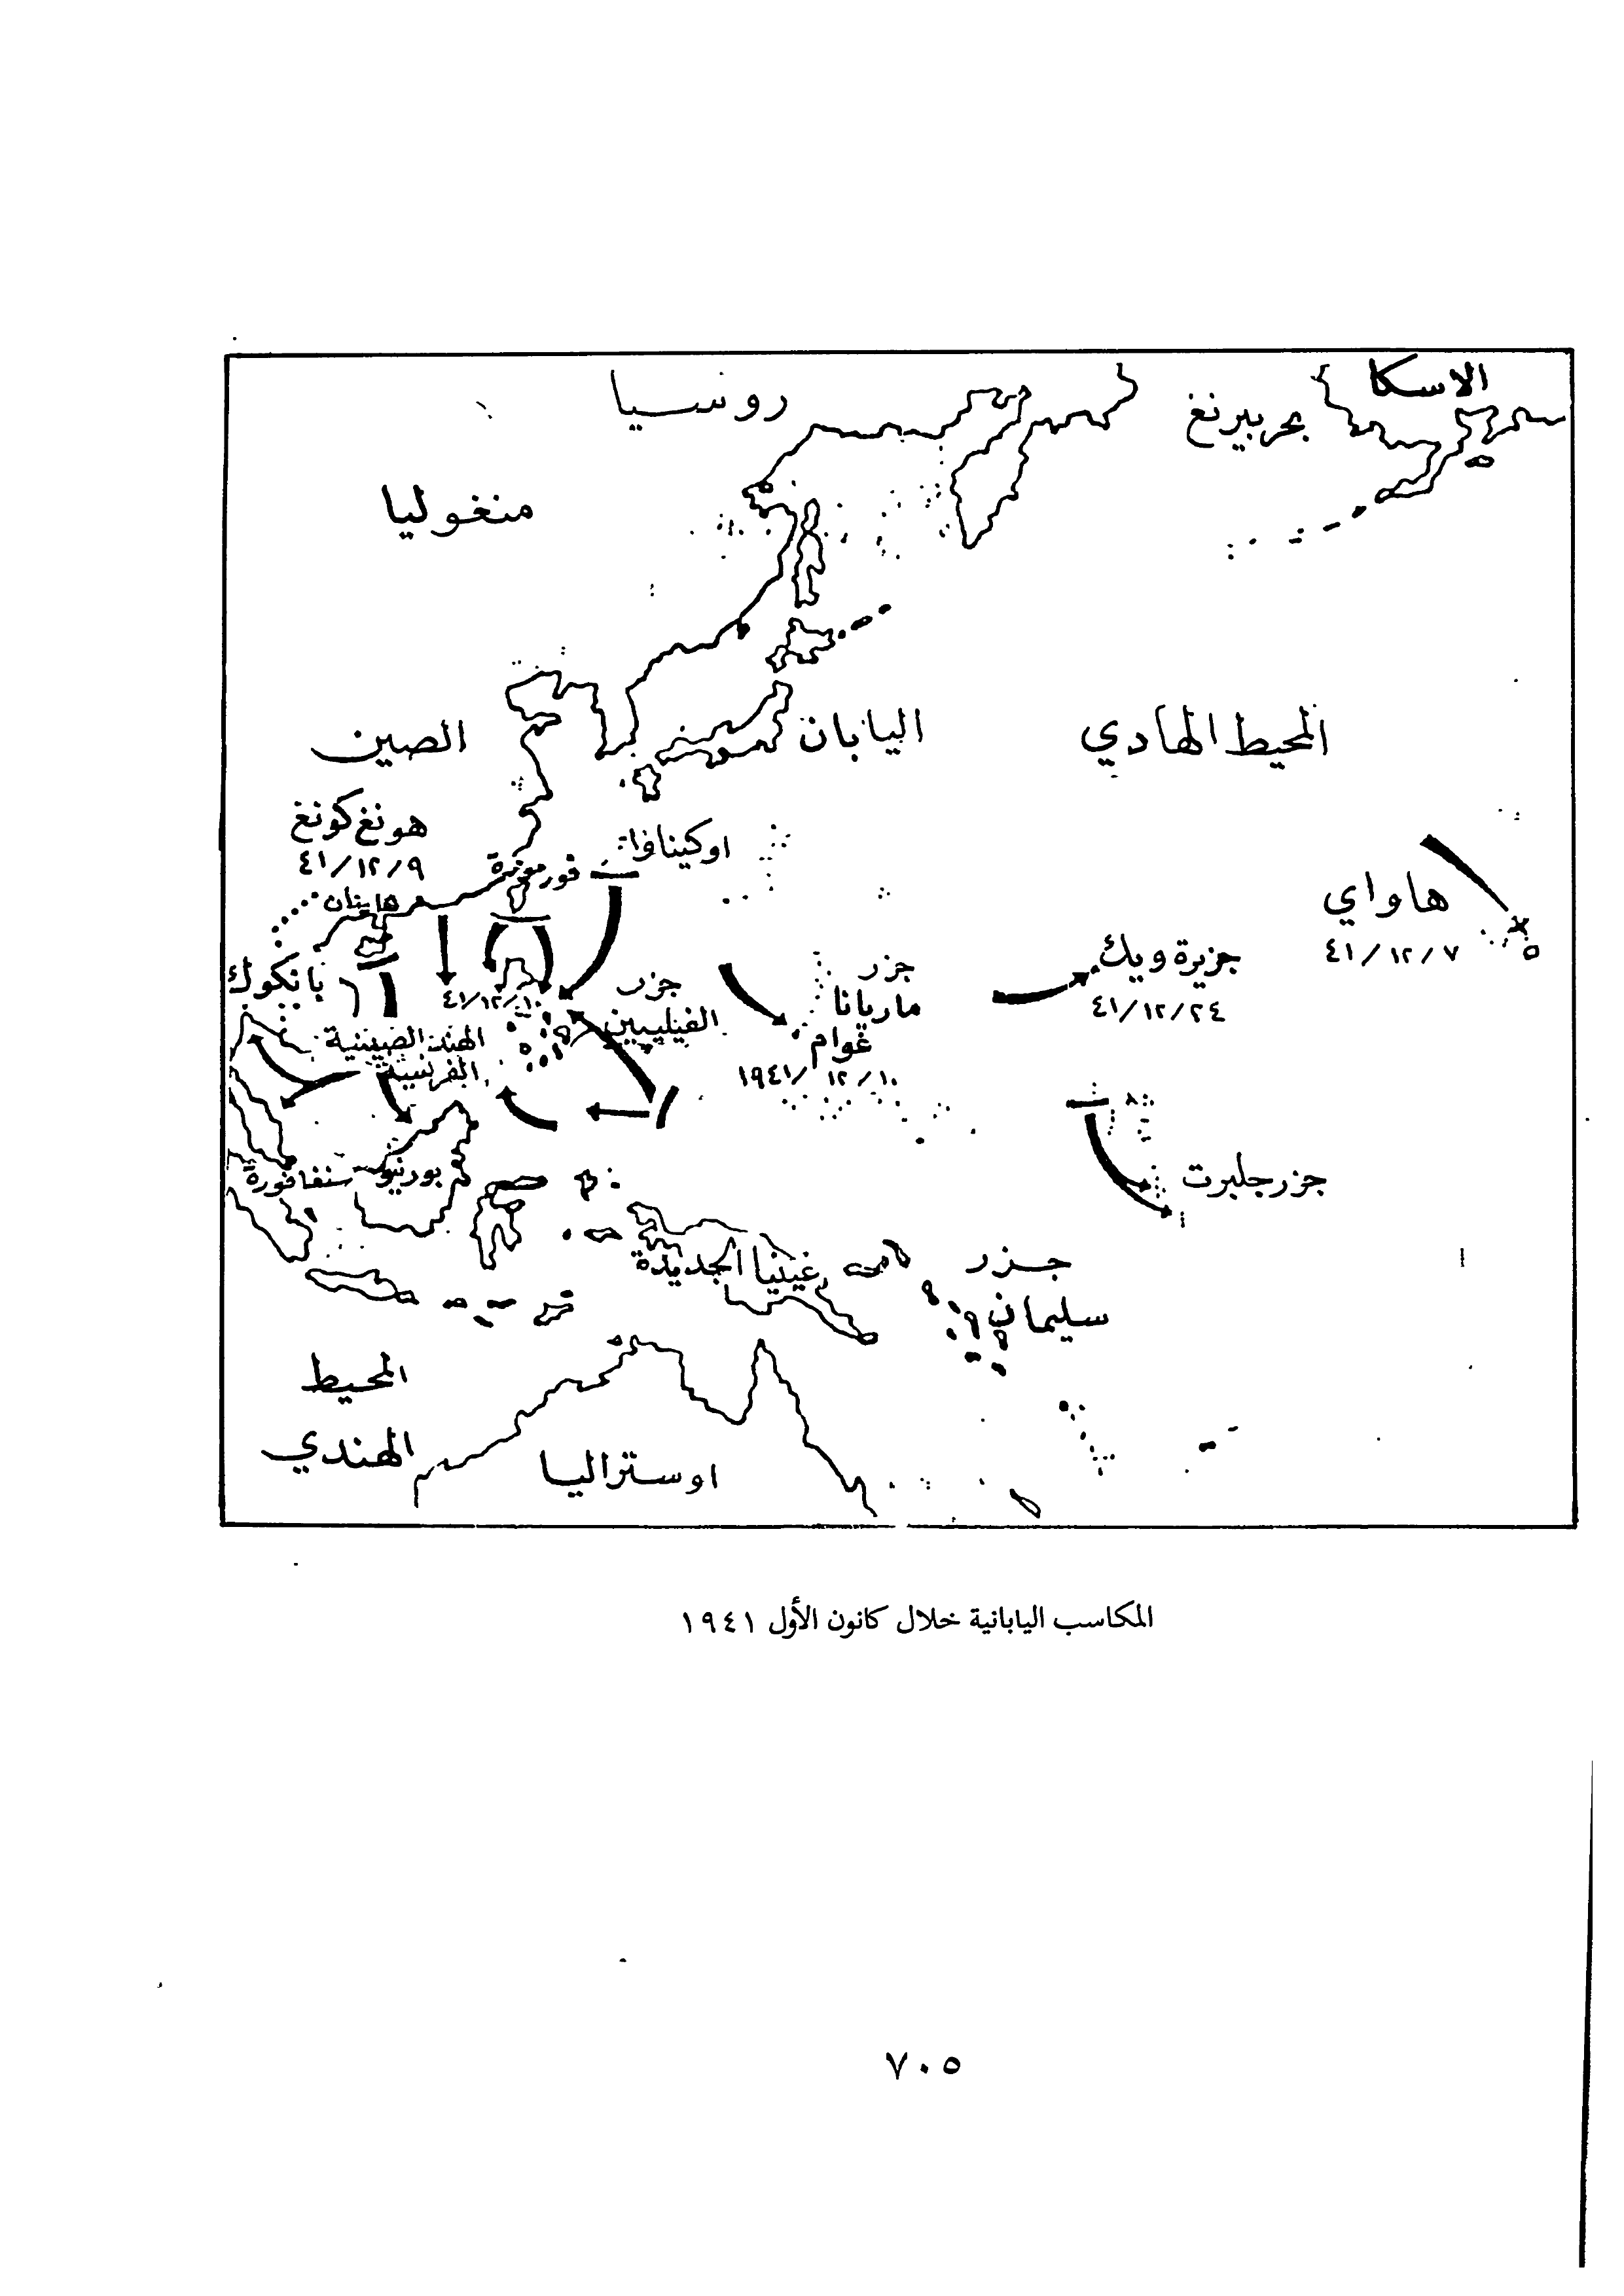 الاسكا
روسيا
بحر بيرنغ
منغوليا
المحيط الهادي
اليابان
الصين
هونغ كونغ
٤١/١٢/٩
اوكيناوا
فورموزة
هاينان
هاواي
٤١/١٢/٧
جزيرة ويك
٤١/١٢/٢٤
جزر
ماريانا
غوام
١٩٤١/١٢/١٠
جزر
الفيليبين
٤١/١٢/١٠
بانكوك
الهند الصينية
الفرنسية
جزر جلبرت
بورنيو
سنغافورة
غينيا الجديدة
جزر
سليمان
المحيط
الهندي
اوستراليا
المكاسب اليابانية خلال كانون الأول ١٩٤١
٧٠٥